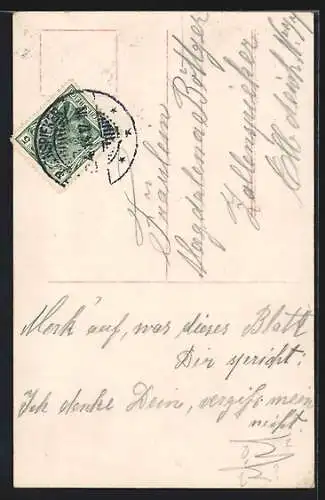 Fräulein
Magdalena Böttger
Zollenspieker
Merk' auf, was dieses Blatt
Dir spricht:
Ich denke Dein, vergiß mein
nicht.